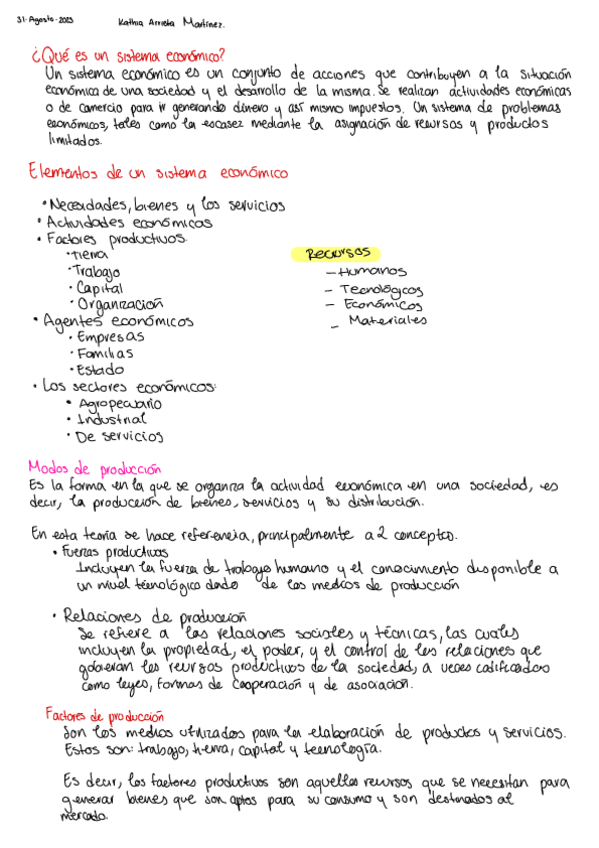 31-Agosto-2023 Kathia Arrieta Martinez.
¿Qué es un sistema económico?
Un sistema económico es un conjunto de acciones que contribuyen a la situación
económica de una sociedad y el desarrollo de la misma. Se realizan actividades económicas
o de comercio para ir generando dinero y así mismo impuestos. Un sistema de problemas
económicos, tales como la escasez mediante la asignación de recursos y productos
limitados.
Elementos de un sistema económico
• Necesidades, bienes y los servicios
• Actividades económicas
• Factores productivos
• Tierra
• Trabajo
• Capital
• Organización
• Agentes económicos
• Empresas
• Familias
• Estado
• Los sectores económicos:
• Agropecuario
• Industrial
• De servicios
Recursos
– Humanos
– Tecnológicos
– Económicos
– Materiales
Modos de producción
Es la forma en la que se organiza la actividad económica en una sociedad, es
decir, la producción de bienes, servicios y su distribución.
En esta teoría se hace referencia, principalmente a 2 conceptos.
• Fuerzas productivas
Incluyen la fuerza de trabajo humano y el conocimiento disponible a
un nivel tecnológico dado de los medios de producción
• Relaciones de producción
Se refiere a las relaciones sociales y técnicas, las cuales
incluyen la propiedad, el poder, y el control de las relaciones que
gobiernan los recursos productivos de la sociedad, a veces codificados
como leyes, formas de cooperación y de asociación.
Factores de producción
Son los medios utilizados para la elaboración de productos y servicios.
Estos son: trabajo, tierra, capital y tecnología.
Es decir, los factores productivos son aquellos recursos que se necesitan para
generar bienes que son aptos para su consumo y son destinados al
mercado.